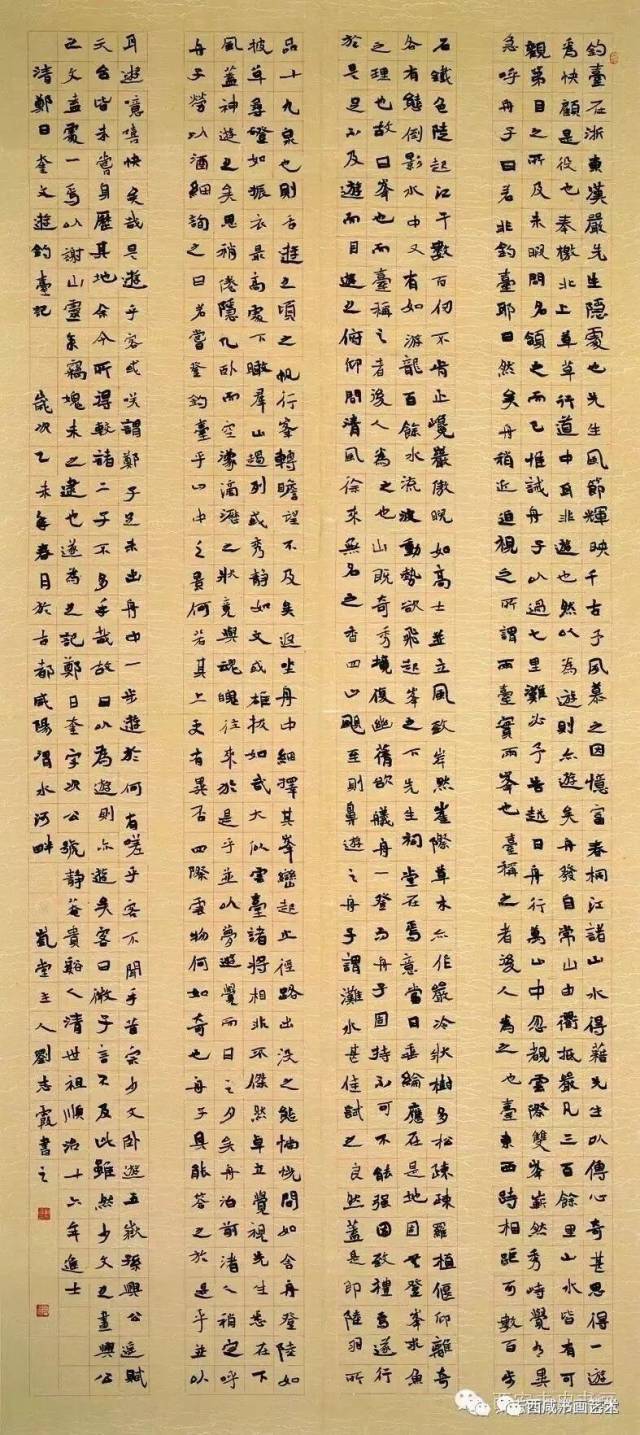 釣臺在浙東漢嚴先生隱處也先生風節輝映千古予夙慕之因憶富春桐江諸山水得藉先生以傳心奇甚思得一遊
為快顧是役也奉檄北上草草行道中耳非遊也然以為遊則亦遊矣舟發自常山由衢抵嚴凡三百餘里山水皆有可
觀第目之所及未暇問名領之而已惟誡舟子以過七里灘必予告越日舟行萬山中忽覩雲際雙峯嶄然秀峙覺有異
急呼舟子曰若非釣臺耶曰然矣舟稍近迫視之所謂兩臺實兩峯也臺稱之者後人為之也臺東西峙相距可數百步
石鐵色陡起江干數百仞不肯止巉巖傲睨如高士並立風致岸然崖際草木亦作嚴冷狀樹多松疎疎羅植偃仰離奇
各有態倒影水中又有如游龍百餘水流波動勢欲飛起峯之下先生祠堂在焉意當日垂綸應在是地固無登峯求魚
之理也故曰峯也而臺稱之者後人為之也山既奇秀境復幽蒨欲艤舟一登而舟子固持不可不能强因致禮焉遂行
於是足不及遊而目遊之俯仰間清風徐來無名之香四山飈至則鼻遊之舟子謂灘水甚佳試之良然蓋是即陸羽所
品十九泉也則舌遊之頃之帆行峯轉瞻望不及矣返坐舟中細繹其峯巒起止徑路出没之態惝恍間如舍舟登陸如
披草尋磴如振衣最高處下瞰羣山趨列或秀静如文或雄拔如武大似雲臺諸將相非不傑然卓立覺視先生悉在下
風蓋神遊之矣思稍倦隱几卧而空濛滴瀝之狀竟與魂魄往來於是乎並以夢遊覺而日之夕矣舟泊前渚人稍定呼
舟子勞以酒細詢之曰若嘗登釣臺乎山中之景何若其上更有異否四際雲物何如奇也舟子具能答之於是乎並以
耳遊噫嘻快矣哉是遊乎客或咲謂鄭子足未出舟中一步遊於何有嗟乎客不聞乎昔宗少文卧遊五嶽孫興公遥賦
天台皆未嘗身歷其地余今所得較諸二子不多乎哉故曰以為遊則亦遊矣客曰微子言不及此雖然少文之畫興公
之文盍處一焉以謝山靈余竊愧未之逮也遂為之記鄭日奎字次公號静菴貴谿人清世祖順治十六年進士
清鄭日奎文遊釣臺記 歲次乙未年春月於古都咸陽渭水河畔 嵐堂主人劉志霞書之
西咸书画艺术